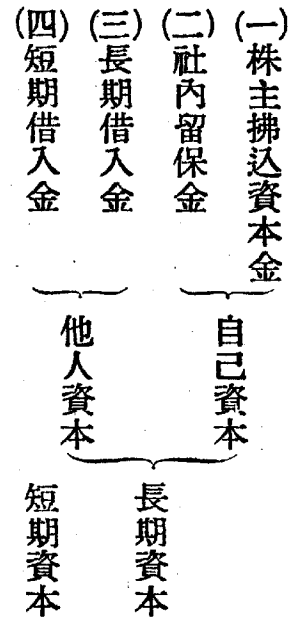 (一)株主拂込資本金
(二)社內留保金
(三)長期借入金
(四)短期借入金
自己資本
他人資本
長期資本
短期資本